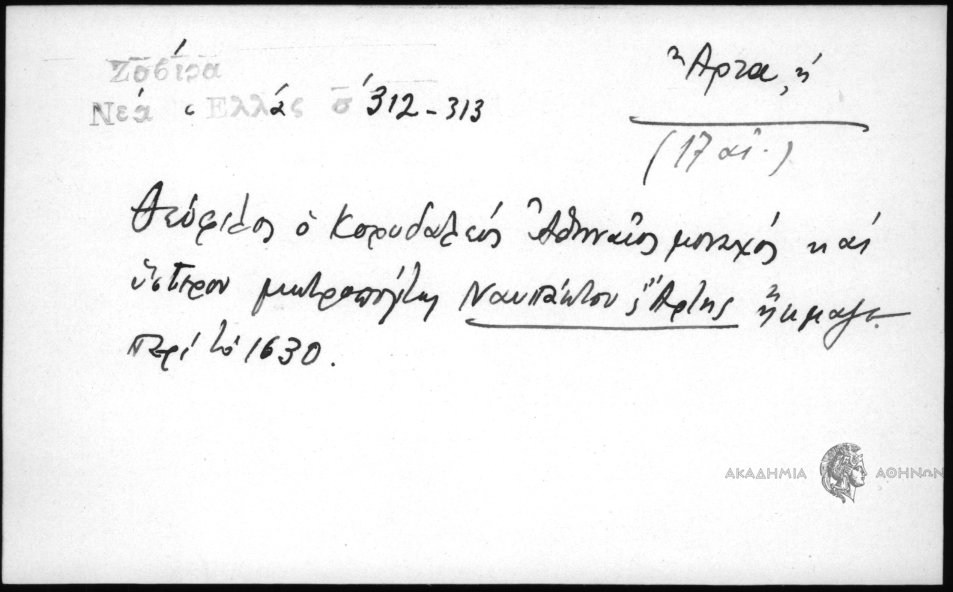 Ζαβίρα
Νέα Ελλάς σ 312-313
Ἄρτα, ἡ
(17 αἰ.)
Θεόφιλος ὁ Κορυδαλεύς Ἀθηναῖος μοναχός καί
ὕστερον μητροπολίτης Ναυπάκτου ς Ἄρτης ἤκμαζε
περί τό 1630.
ΑΚΑΔΗΜΙΑ ΑΘΗΝΩΝ